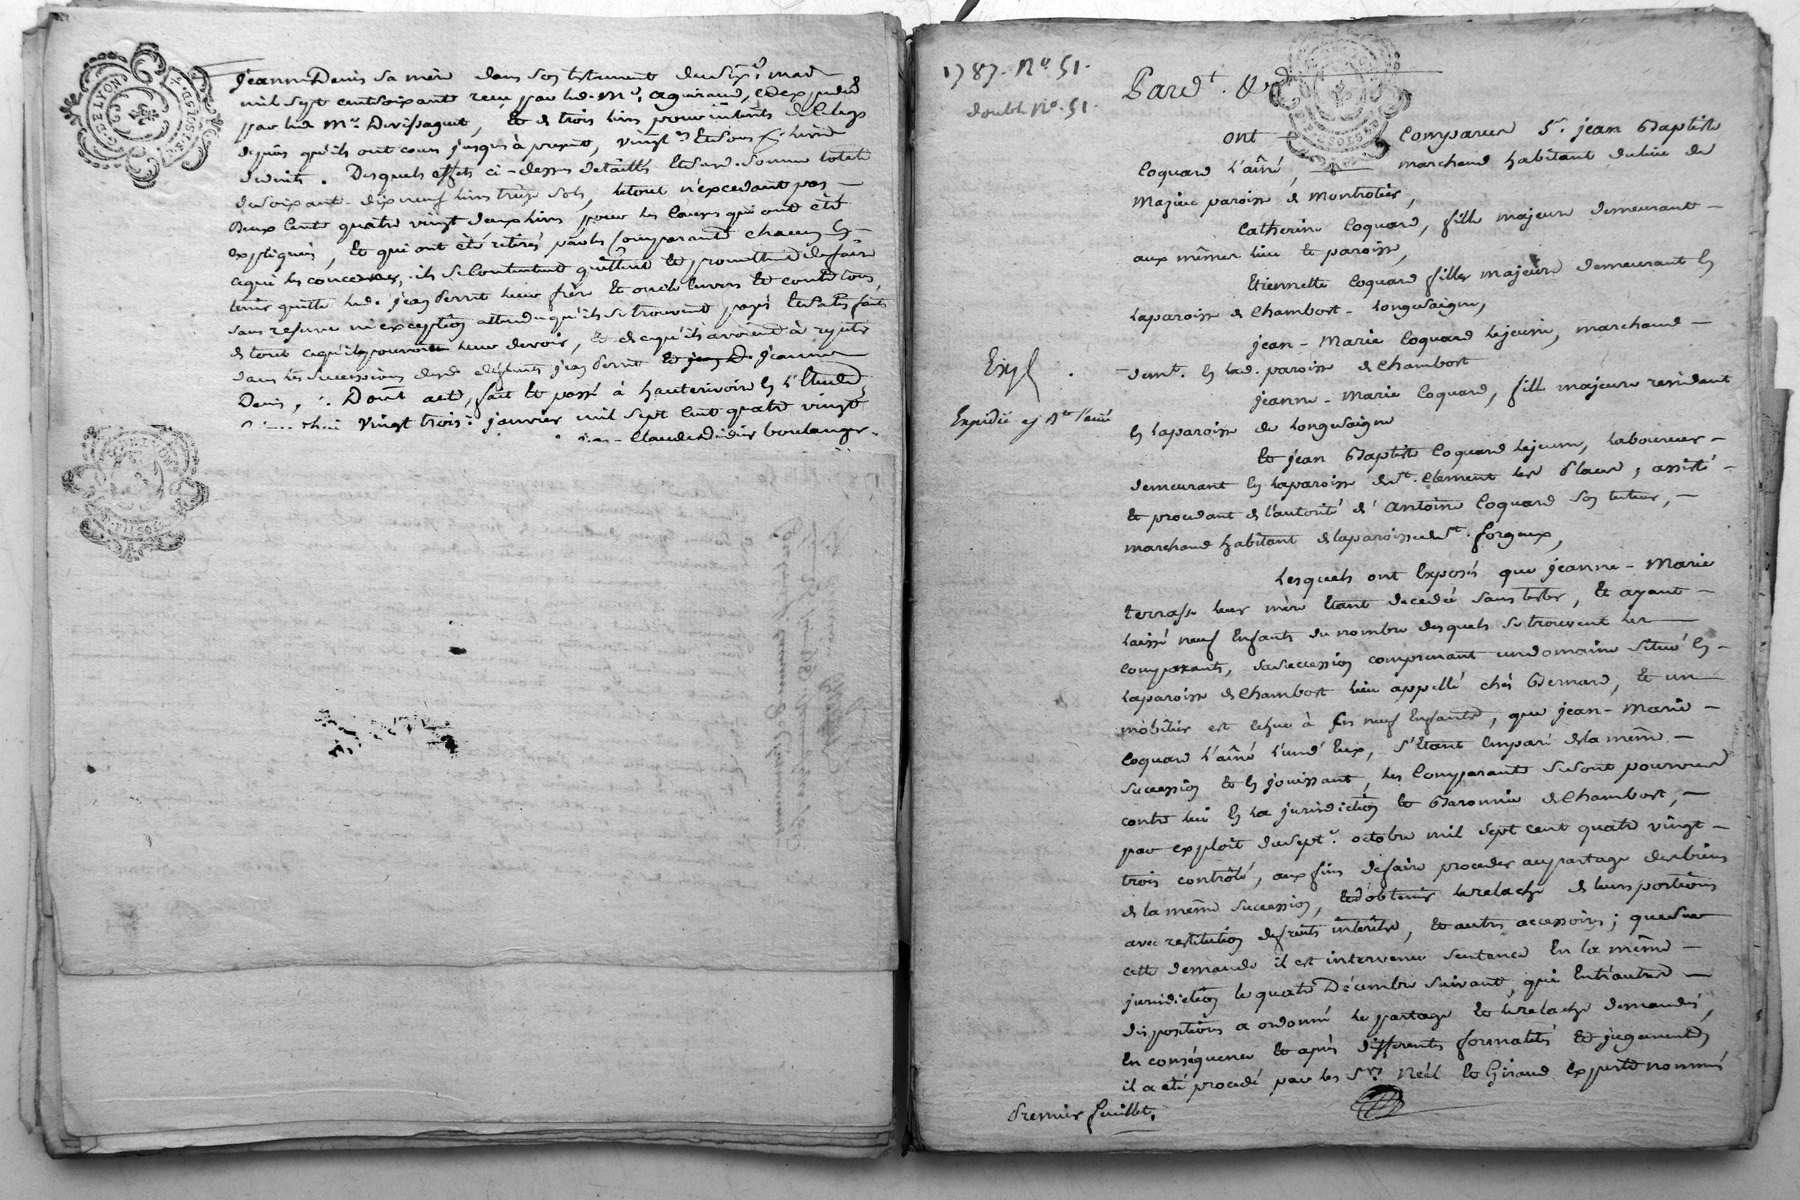 jeanne Denis sa mère dans son testament du six mai
mil sept cent soixante recu par led. Me. aguiraud, et expedié
par led. Me. Devissaguet, et de trois livres pour interets
depuis qu'ils ont cours jusques à present, vingt
Desquels effets ci-dessus detaillés et de lad. somme totale
de soixante-dix neuf livres treize sols, le tout n'excedant pas
Deux cents quatre vingt deux livres, pour les causes qui ont été
expliquées, et qui ont été retirés par les comparants chacun en
ce qui les concerne, ils se contentent quittent et promettent de faire
tenir quitte led. jean leur frère et oncle envers et contre tous
sans reserve ni exception attendu qu'ils se trouvent payés et satisfaits
de tout ce qu'il pouvoit leur devoir, et de ce qu'ils avoient à repeter
dans les successions desd. defunts jean et jeanne
Denis, Dont acte, fait et passé à hauterivoire en l'Etude
vingt trois janvier mil sept cent quatre vingt
Claude Didier boulanger
DE LYON
1787. No. 51.
double No. 51.
Pard.t &
ont Comparus Sr. jean Baptiste
Coquard l'aîné, marchand habitant du lieu de
Majieu paroisse de Montrotier,
Catherine Coquard, fille majeure demeurant
aux mêmes lieu et paroisse,
Etiennette Coquard fille majeure demeurant en
la paroisse de Chambost-Longesaigne,
jean-Marie Coquard le jeune, marchand
demt. en lad. paroisse de Chambost
jeanne-Marie Coquard, fille majeure residant
en la paroisse de Longesaigne
et jean Baptiste Coquard le jeune, laboureur
demeurant en la paroisse de St. Clement les Places, assisté
et procedant de l'autorité d'Antoine Coquard son tuteur,
marchand habitant de la paroisse de St. forgeux,
Lesquels ont exposés que jeanne-Marie
terrasse leur mère étant decedée sans tester, et ayant
laissé neuf Enfants du nombre desquels se trouvent les
comparants, sa succession comprenant un domaine situé en
la paroisse de Chambost lieu appellé chés Bernard, et un
mobilier est echue à ses neuf Enfants, que jean-Marie
Coquard l'aîné l'un d'Eux, s'étant Emparé de la même
succession et en jouissant, les Comparants se sont pourvus
contre lui en la jurisdiction et Baronnie de Chambost,
par exploit du sept octobre mil sept cent quatre vingt
trois contrôlé, aux fins de faire proceder au partage des biens
de la même succession, et d'obtenir le relache de leurs portions
avec restitution de fruits interêts, et autres accessoires; que sur
cette demande il est intervenu sentence En la même
jurisdiction le quatre Décembre suivant, qui Entr'autres
dispositions a ordonné le partage et le relache demandés,
En conséquence et après differentes formalités et jugements
il a été procedé par les Srs. Néel et Giraud experts nommés
Expedié
Premier feuillet.